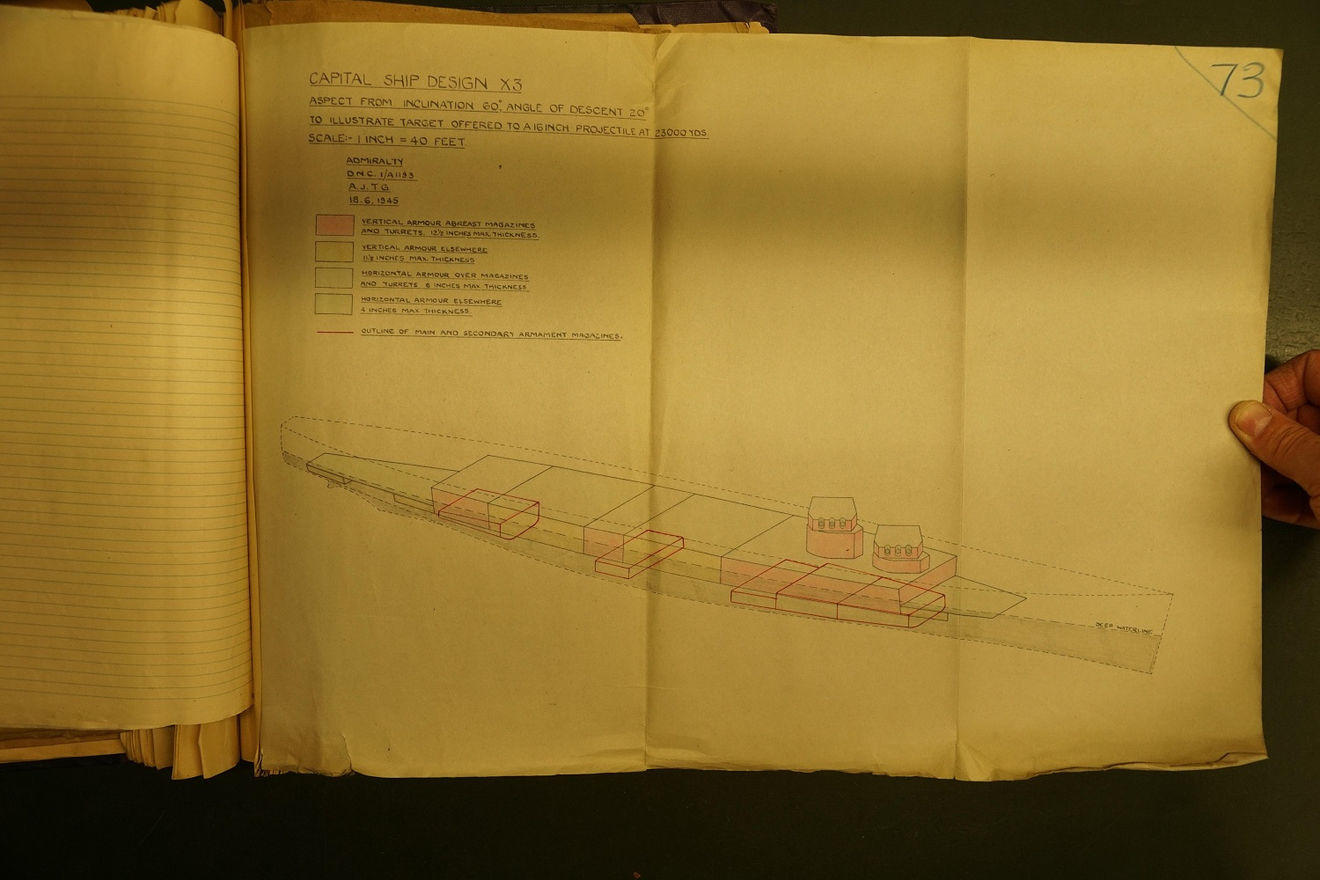 CAPITAL SHIP DESIGN X3
73
ASPECT FROM INCLINATION 60°, ANGLE OF DESCENT 20°
TO ILLUSTRATE TARGET OFFERED TO A 16 INCH PROJECTILE AT 23000 YDS.
SCALE:- 1 INCH = 40 FEET
ADMIRALTY
D.N.C. 1/A1193
A.J.T.G
18.6.1945
VERTICAL ARMOUR ABREAST MAGAZINES
AND TURRETS. 12½ INCHES MAX. THICKNESS.
VERTICAL ARMOUR ELSEWHERE
11½ INCHES MAX. THICKNESS
HORIZONTAL ARMOUR OVER MAGAZINES
AND TURRETS 6 INCHES MAX THICKNESS
HORIZONTAL ARMOUR ELSEWHERE
4 INCHES MAX THICKNESS.
OUTLINE OF MAIN AND SECONDARY ARMAMENT MAGAZINES.
DEEP WATERLINE